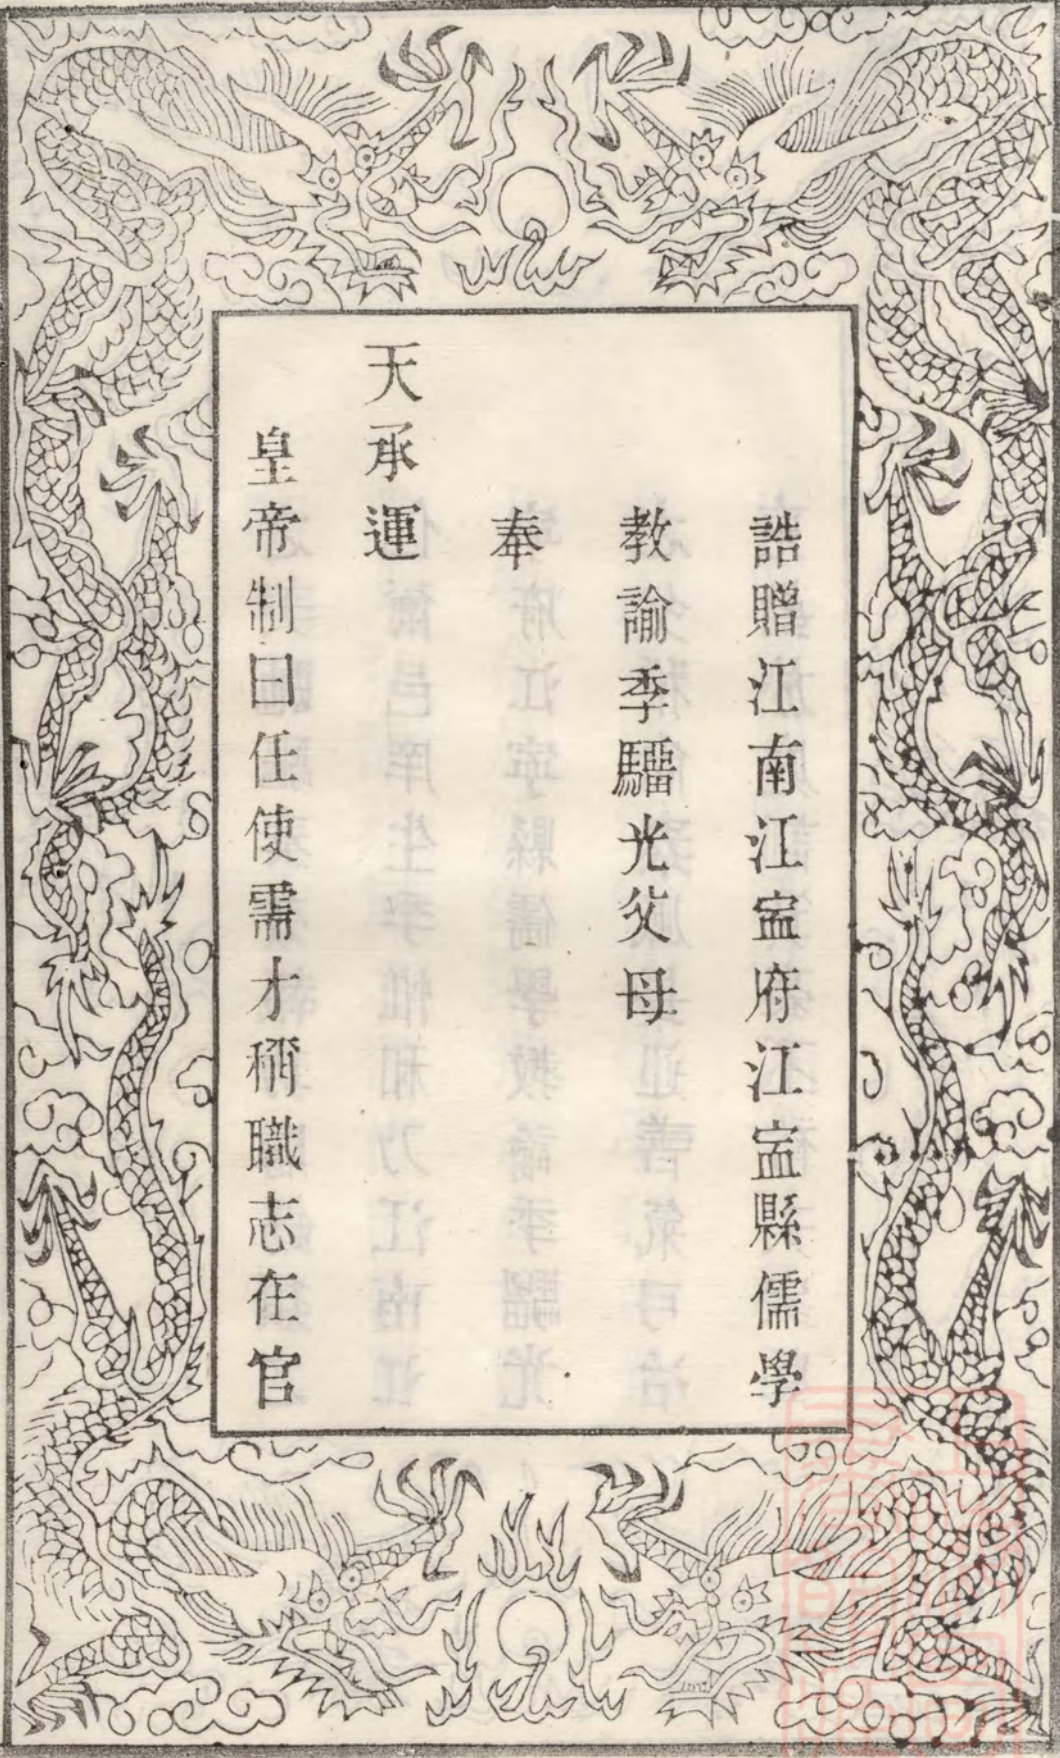 誥贈江南江寍府江寍縣儒學
教諭季驑光父母
奉
天承運
皇帝制曰任使需才稱職志在官